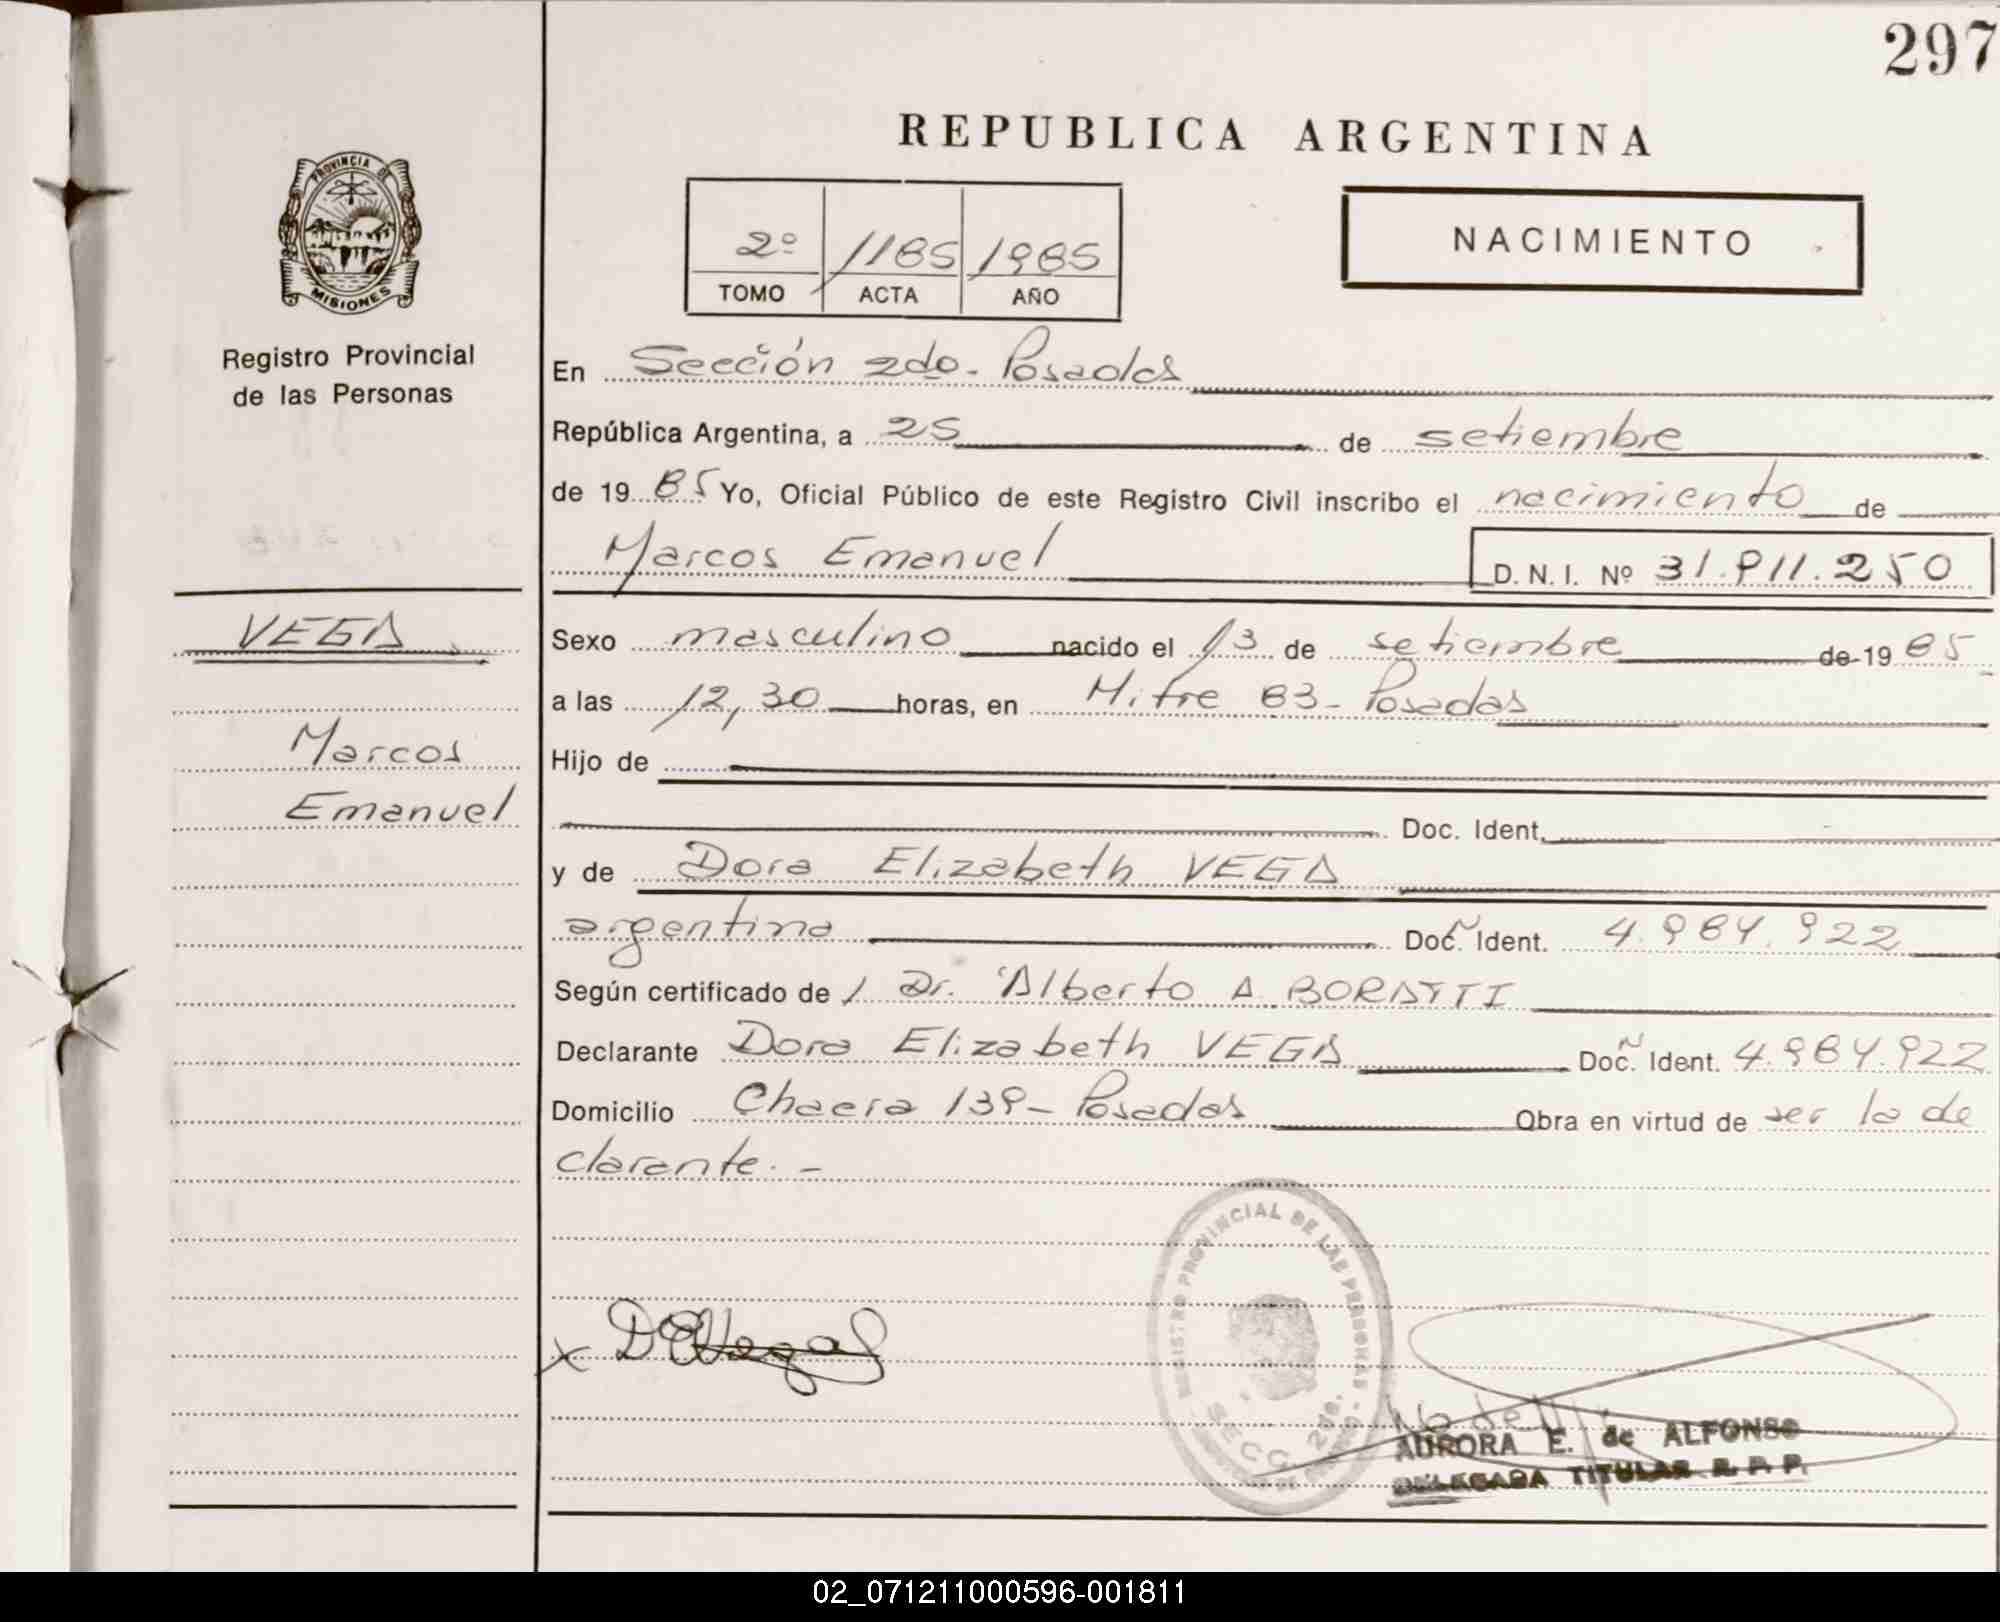 297
REPUBLICA ARGENTINA
PROVINCIA DE
MISIONES
Registro Provincial
de las Personas
2º 1185 1985
TOMO ACTA AÑO
NACIMIENTO
En Sección 2da. Posadas
República Argentina, a 25 de setiembre
de 1985 Yo, Oficial Público de este Registro Civil inscribo el nacimiento de
Marcos Emanuel D. N. I. Nº 31.911.250
VEGA
Marcos
Emanuel
Sexo masculino nacido el 13 de setiembre de 1985
a las 12,30 horas, en Mitre 83- Posadas
Hijo de
Doc. Ident.
y de Dora Elizabeth VEGA
argentina Doc. Ident. 4.984.922
Según certificado de / Dr. Alberto A. BORATTI
Declarante Dora Elizabeth VEGA Doc. Ident. 4.984.922
Domicilio Chacra 139- Posadas Obra en virtud de ser la de
clarante.-
REGISTRO PROVINCIAL DE LAS PERSONAS
SECC. 2da.
x DEVega
AURORA E. de ALFONSO
DELEGADA TITULAR R. P. P.
02_071211000596-001811